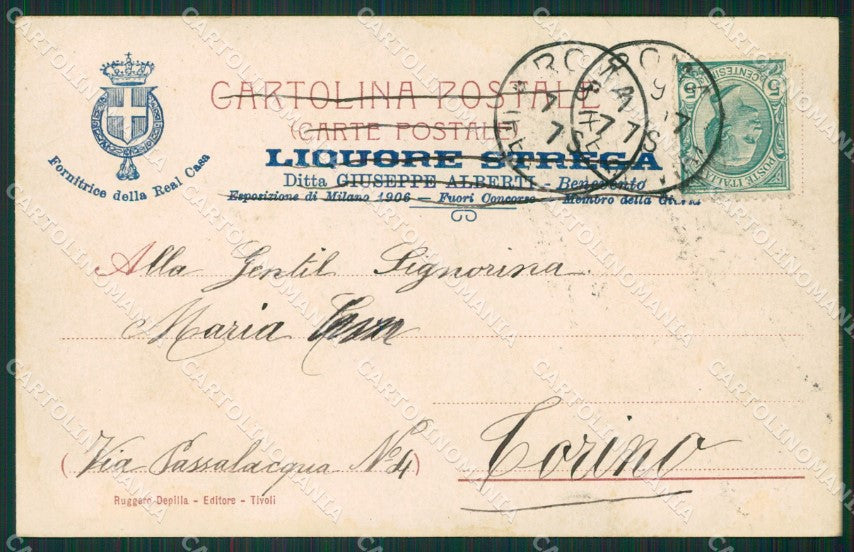 CARTOLINA POSTALE
(CARTE POSTALE)
LIQUORE STREGA
Ditta GIUSEPPE ALBERTI - Benevento
Esposizione di Milano 1906 — Fuori Concorso — Membro della Giuria
Fornitrice della Real Casa
ROMA
ROMA
POSTE ITALIANE
CENTESIMI
5 5
Alla Gentil Signorina
Maria
Torino
(Via Passalacqua No 4)
Ruggero Depilla - Editore - Tivoli
CARTOLINOMANIA